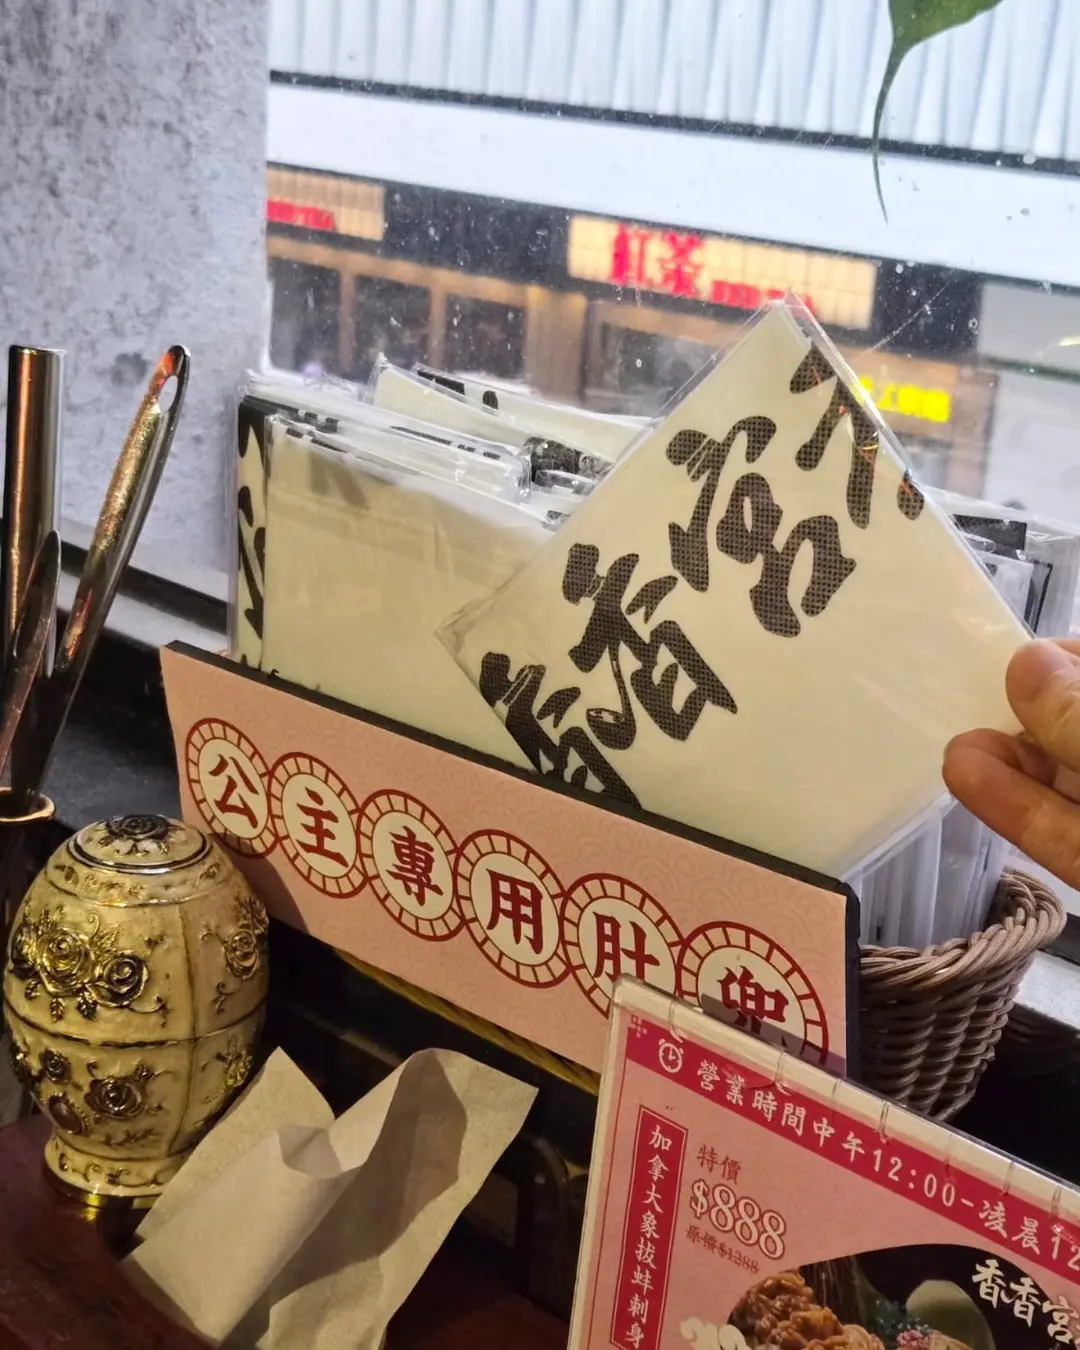 紅茶
香香宮
公主專用肚兜
營業時間中午12:00-凌晨12
加拿大象拔蚌刺身
特價
$888
原價$1288
香香宮